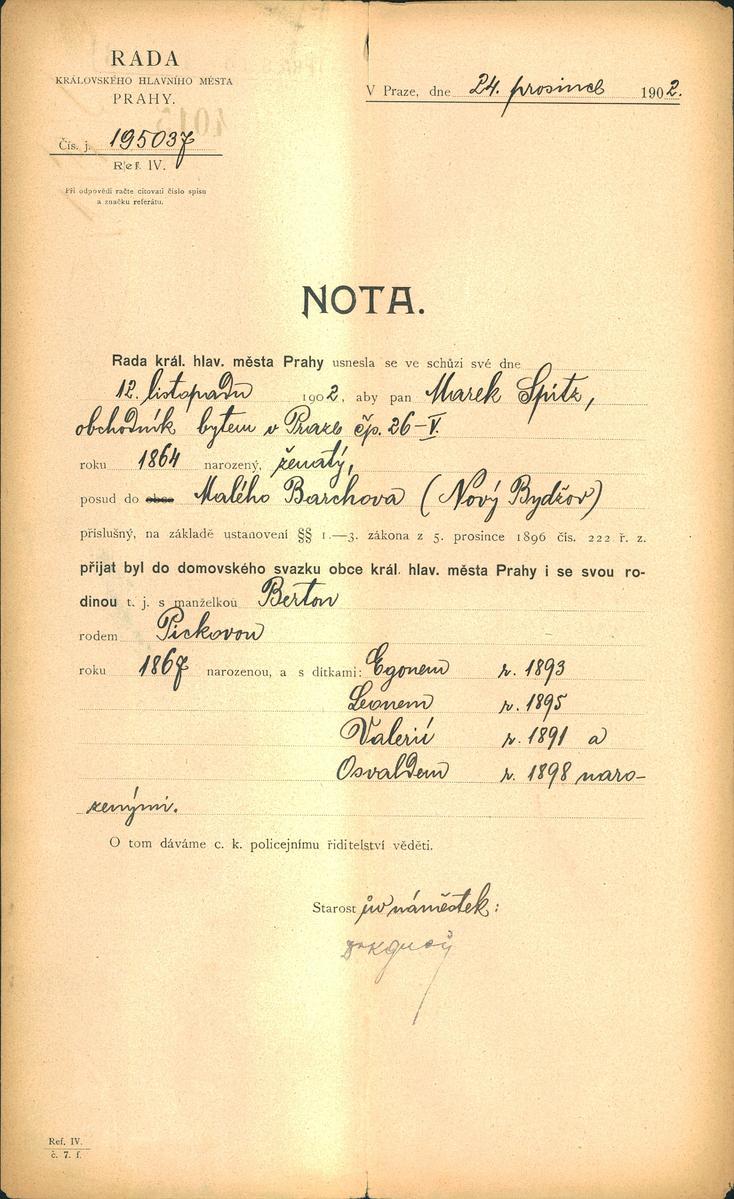 RADA
KRÁLOVSKÉHO HLAVNÍHO MĚSTA
PRAHY.
V Praze, dne 24. prosince 1902.
Čís. j. 195037
Ref. IV.
Při odpovědi račte citovati číslo spisu
a značku referátu.
NOTA.
Rada král. hlav. města Prahy usnesla se ve schůzi své dne
12. listopadu 1902, aby pan Marek Spitz,
obchodník bytem v Praze čp. 26-V.
roku 1864 narozený, ženatý,
posud do obce Malého Barchova (Nový Bydžov)
příslušný, na základě ustanovení §§ 1.—3. zákona z 5. prosince 1896 čís. 222 ř. z.
přijat byl do domovského svazku obce král. hlav. města Prahy i se svou ro-
dinou t. j. s manželkou Bertou
rodem Pickovou
roku 1867 narozenou, a s dítkami: Egonem r. 1893
Leonem r. 1895
Valerií r. 1891 a
Osvaldem r. 1898 naro-
zenými.
O tom dáváme c. k. policejnímu řiditelství věděti.
Starostův náměstek:
Ref. IV.
č. 7. f.